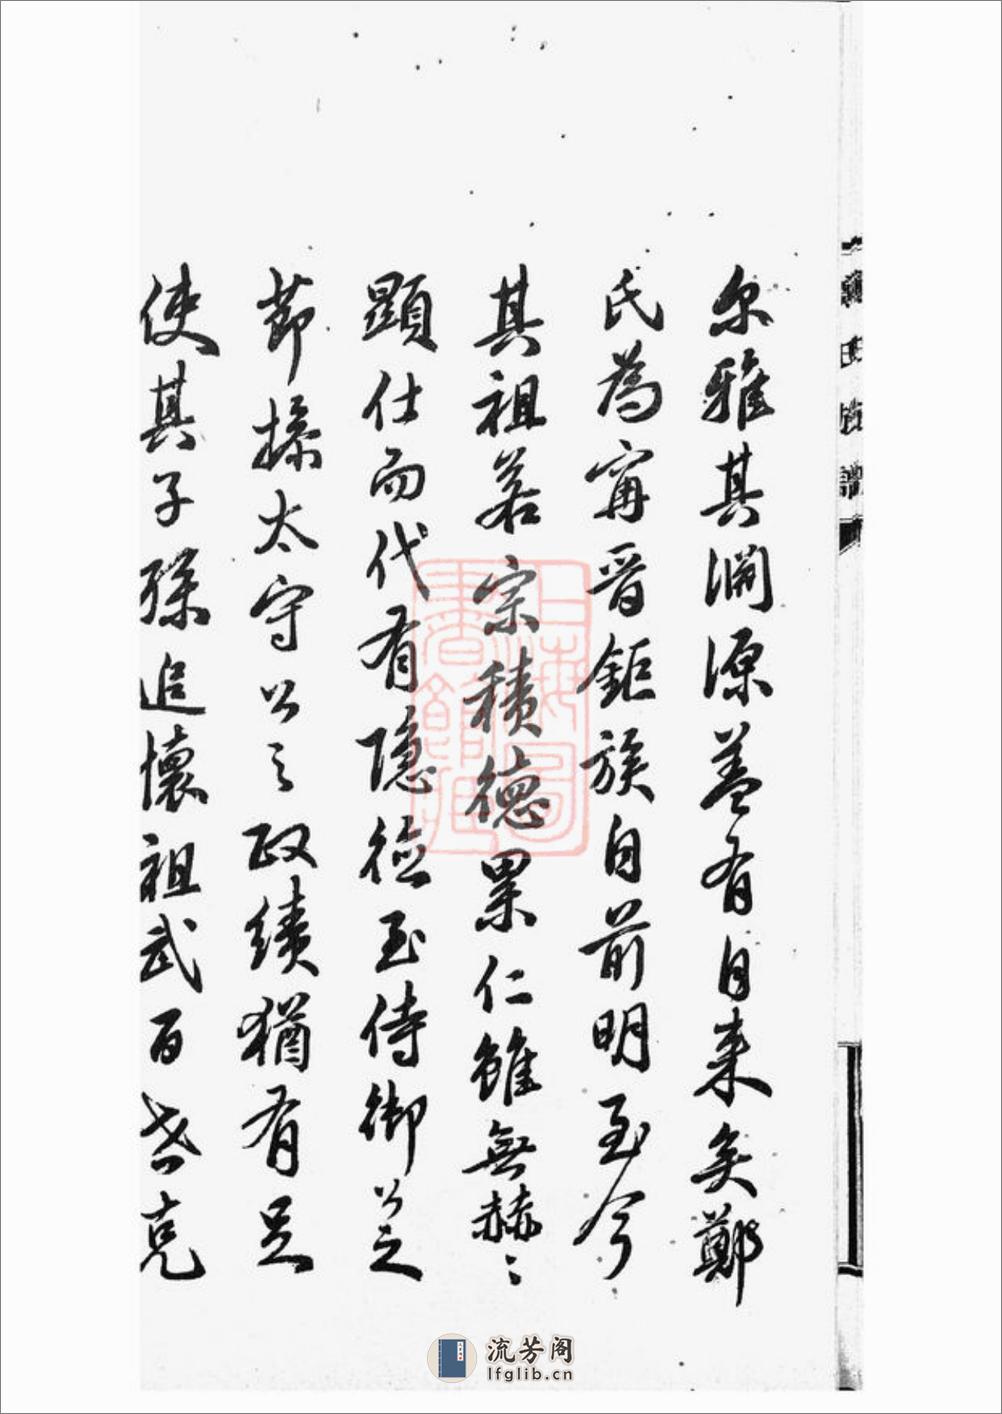 尔雅其渊源盖有自来矣鄭
氏為甯晋鉅族自前明至今
其祖若宗積德累仁雖無赫〻
顕仕而代有隐德至侍御公之
節操太守公之政績猶有足
使其子孫追懷祖武百世克
鄭氏族譜
上海圖書館藏
流芳阁
lfglib.cn